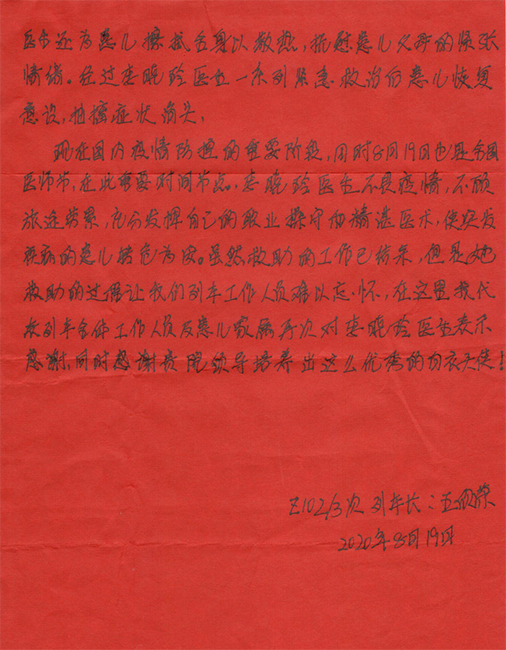 医生还为患儿擦拭全身以散热，抚慰患儿父母的紧张
情绪。经过李晓玲医生一系列紧急救治后患儿恢复
意识，抽搐症状消失。
现在国内疫情防控的重要阶段，同时8月19日也是全国
医师节，在此重要时间节点。李晓玲医生不畏疫情，不顾
旅途劳累，充分发挥自己的职业操守和精湛医术，使突发
疾病的患儿转危为安。虽然救助的工作已结束，但是她
救助的过程让我们列车工作人员难以忘怀，在这里我代
表列车全体工作人员及患儿家属再次对李晓玲医生表示
感谢，同时感谢贵院领导培养出这么优秀的白衣天使！
Z102/3次 列车长：王
2020年8月19日